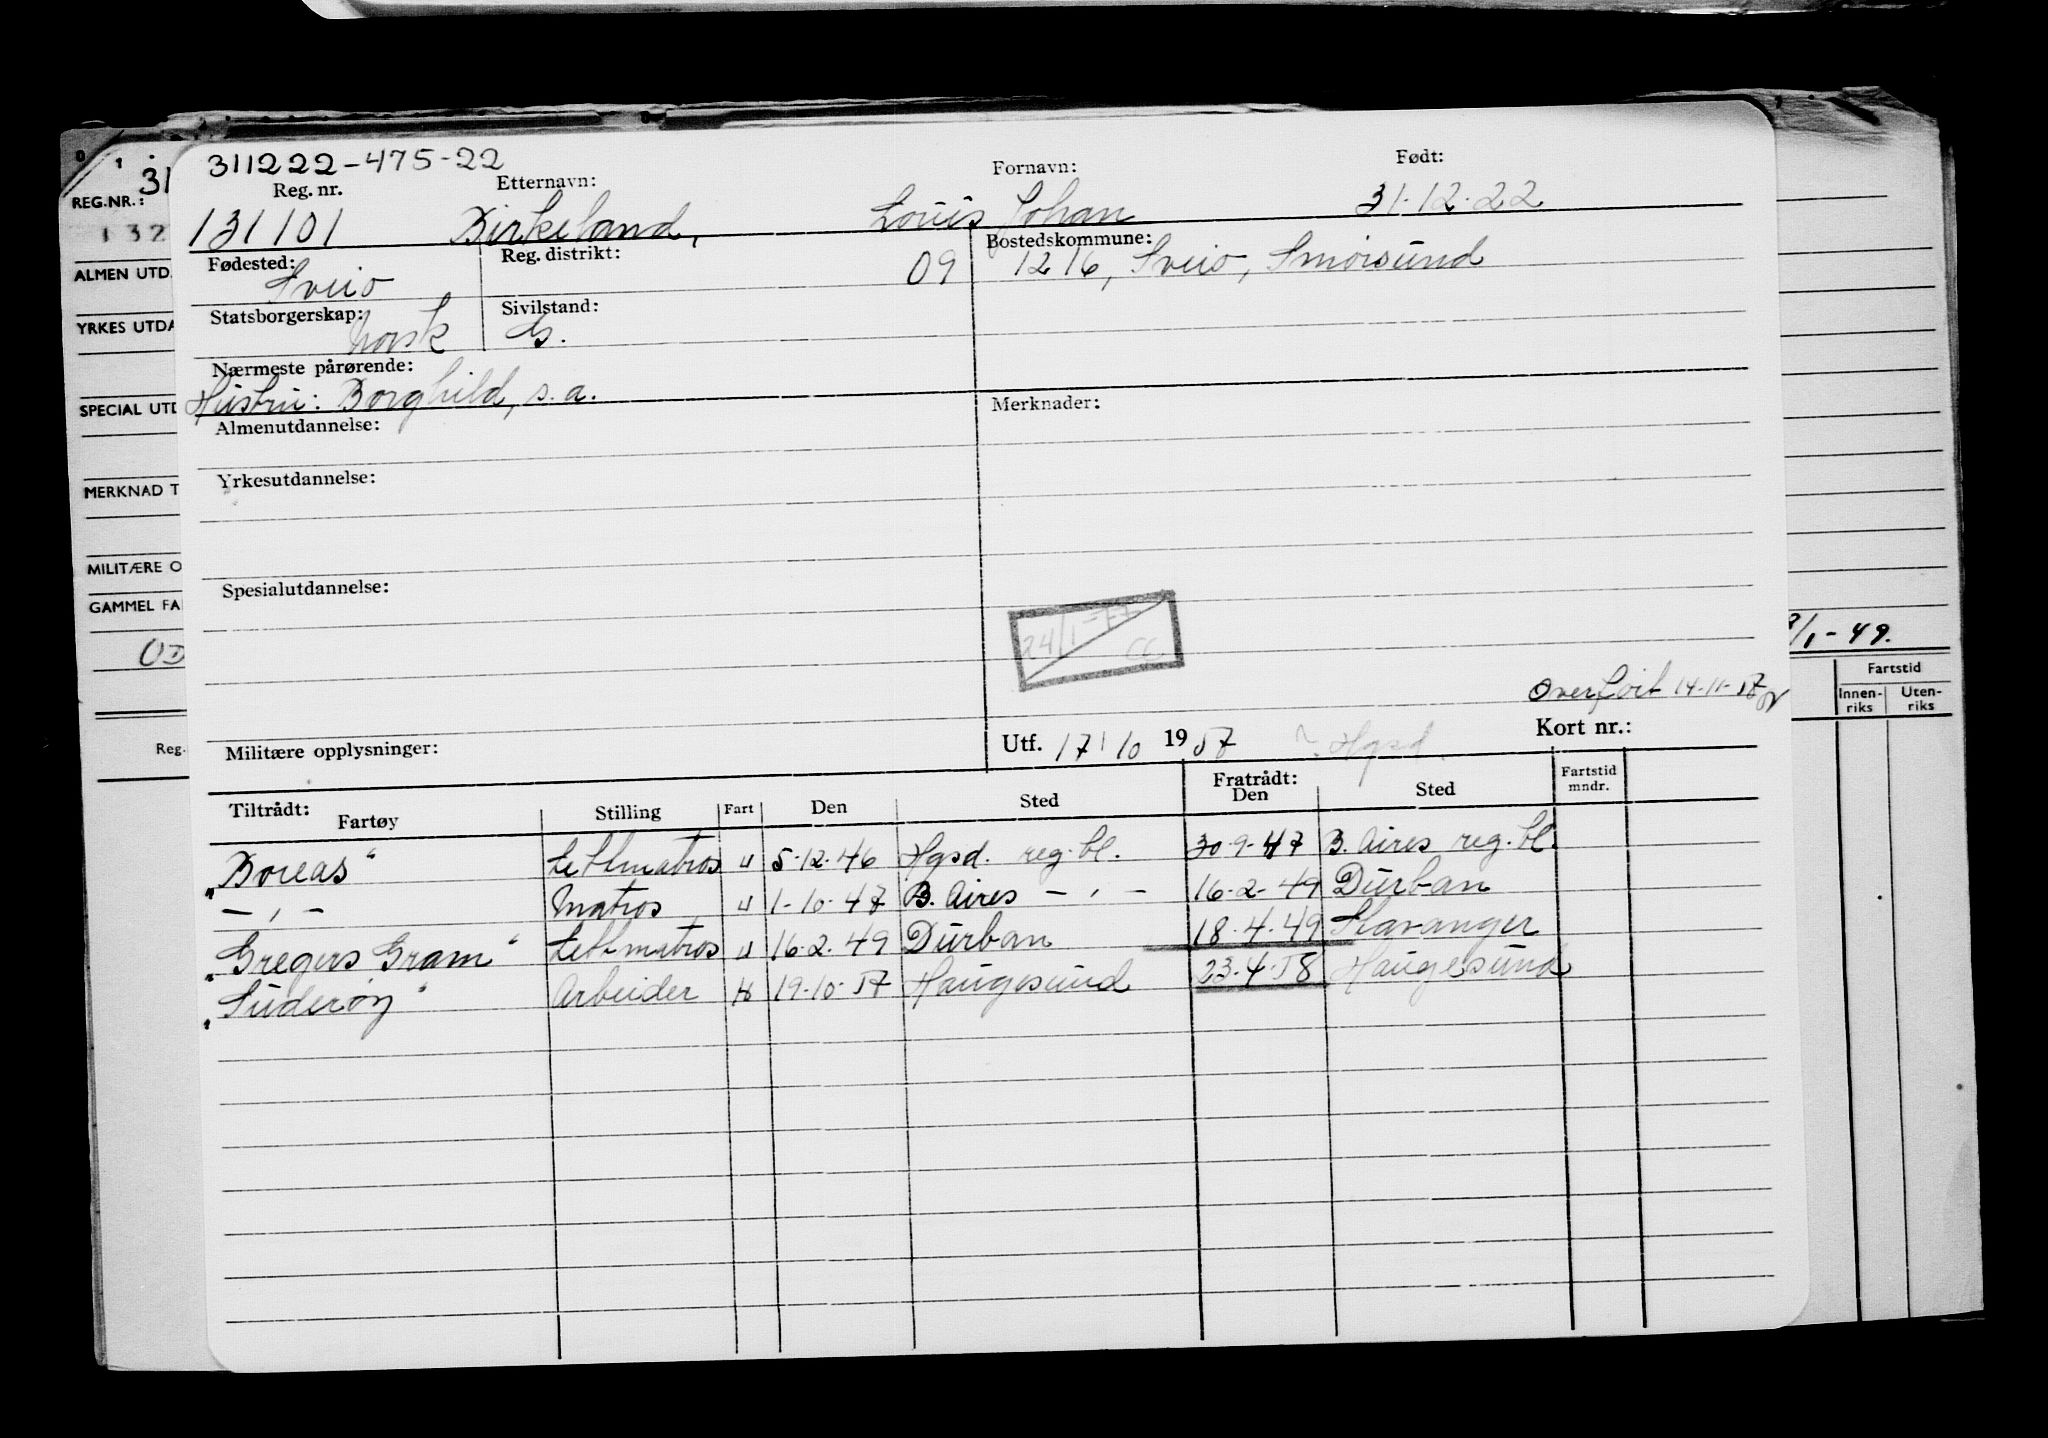 311222-475-22
Reg. nr. Etternavn: Fornavn: Født:
131101 Birkeland, Louis Johan 31.12.22
Fødested: Reg. distrikt: Bostedskommune:
Sveio 09 1216, Sveio, Smørsund
Statsborgerskap: Sivilstand:
Norsk G.
Nærmeste pårørende:
Hustru: Borghild, s.a.
Almenutdannelse: Merknader:
Yrkesutdannelse:
Spesialutdannelse:
24/1-77
Overført 14-11-57
Militære opplysninger: Utf. 17/10 1957 Hgsd Kort nr.:
Tiltrådt: Fratrådt:
Fartøy Stilling Fart Den Sted Den Sted Fartstid mndr.
"Boreas" Lettmatros U 5-12-46 Hgsd. reg. bl. 30-9-47 B. Aires reg. bl.
- , - Matros U 1-10-47 B. Aires - , - 16-2-49 Durban
"Gregers Gram" Lettmatros U 16-2-49 Durban 18-4-49 Stavanger
"Suderøy" Arbeider H 19-10-57 Haugesund 23-4-58 Haugesund
31
REG.NR.:
132
ALMEN UTD.
YRKES UTDA
SPECIAL UTD
MERKNAD T
MILITÆRE O
GAMMEL FA
Reg.
/1-49.
Fartstid
Innen-riks Uten-riks